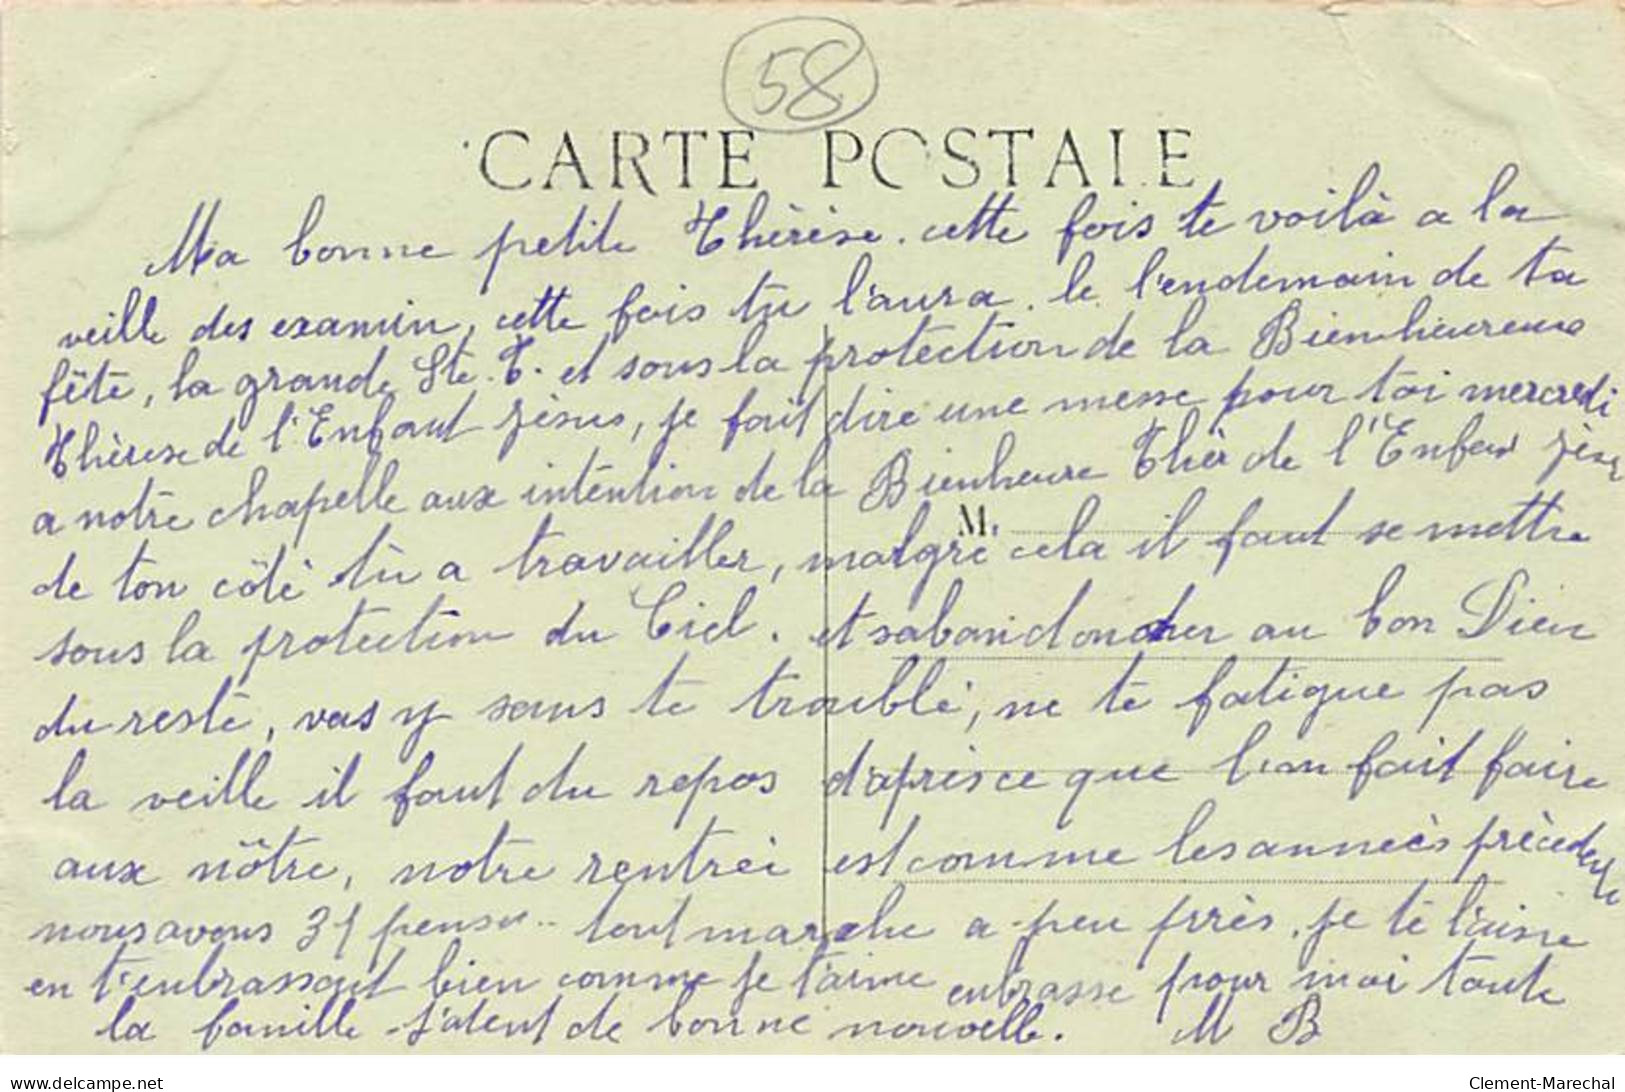 58
CARTE POSTALE
Ma bonne petite Thérèse. cette fois te voilà a la
veille des examin, cette fois tu l'aura le l'endemain de ta
fête, la grande Ste. T. et sous la protection de la Bienheureuse
Thérèse de l'Enfant Jésus, je fait dire une messe pour toi mercredi
a notre chapelle aux intention de la Bienheure Thér de l'Enfan Jésus
M.
de ton côté tu a travailler, malgré cela il faut se mettre
sous la protection du Ciel. et sabandonner au bon Dieu
du reste, vas y sans te troublé, ne te fatigue pas
la veille il faut du repos d'après ce que l'on fait faire
aux nôtre, notre rentréé est comme les années précedente
nous avons 31 pensn.. tout marche a peu près. je te laisse
en t'enbrassant bien comme je t'aime enbrasse pour moi toute
la famille j'atent de bonne nouvelle. M B
www.delcampe.net
Clement-Marechal